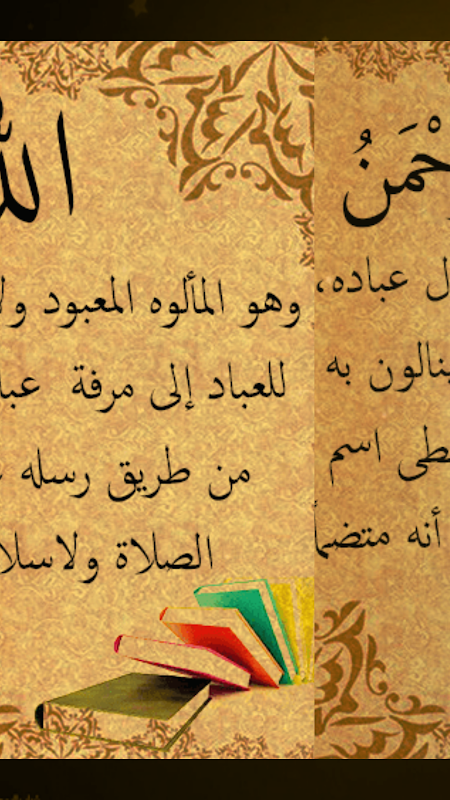 الله
وهو المألوه المعبود ولا
للعباد إلى مرفة عبا
من طريق رسله
الصلاة ولاسلا
حْمَنُ
ل عباده،
ينالون به
طى اسم
أنه متضمأ